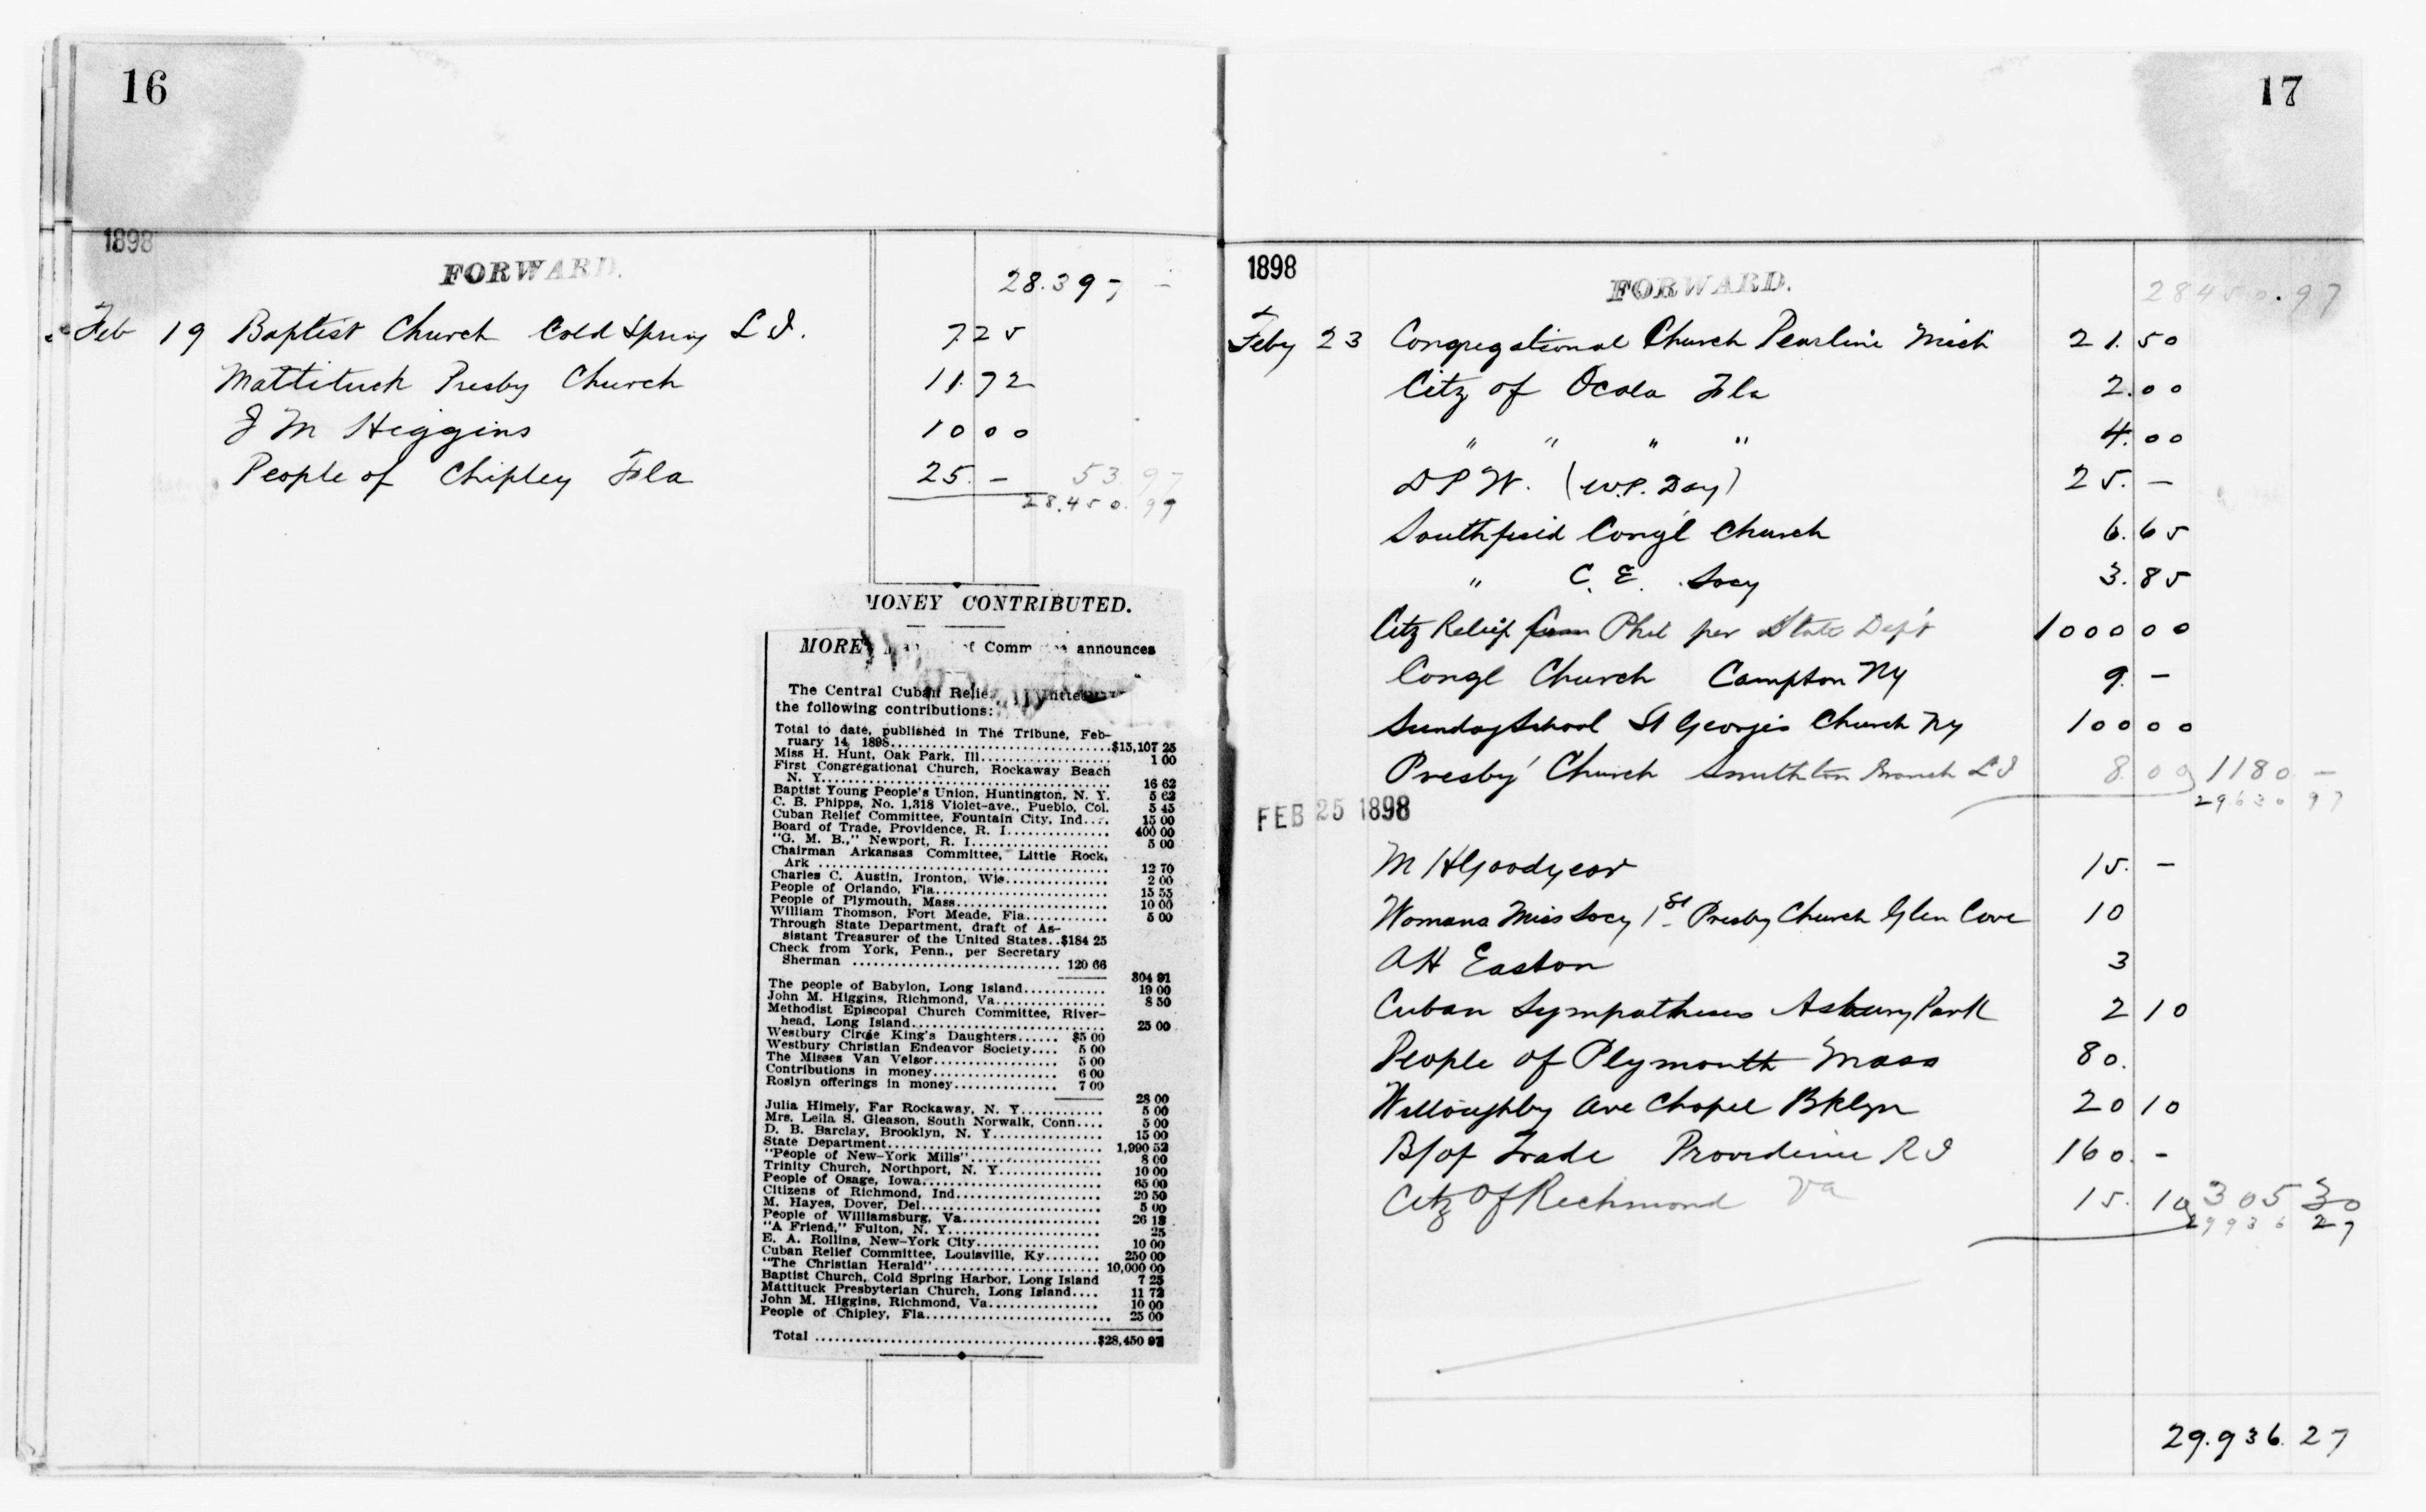 16
1898
FORWARD.
28.397 –
Feb 19 Baptist Church Cold Spring L I. 7.25
Mattituck Presby Church 11.72
J M Higgins 10 00
People of Chipley Fla 25. – 53.97
28.450.97
MONEY CONTRIBUTED.
MORE Comm announces
The Central Cuban Relie
the following contributions:
Total to date, published in The Tribune, Feb-
ruary 14, 1898 $15,107 25
Miss H. Hunt, Oak Park, Ill. 1 00
First Congregational Church, Rockaway Beach
N. Y. 16 62
Baptist Young People's Union, Huntington, N. Y. 5 62
C. B. Phipps, No. 1,318 Violet-ave., Pueblo, Col. 5 45
Cuban Relief Committee, Fountain City, Ind. 15 00
Board of Trade, Providence, R. I. 400 00
"G. M. B.," Newport, R. I. 5 00
Chairman Arkansas Committee, Little Rock,
Ark 12 70
Charles C. Austin, Ironton, Wis. 2 00
People of Orlando, Fla. 15 55
People of Plymouth, Mass. 10 00
William Thomson, Fort Meade, Fla. 5 00
Through State Department, draft of As-
sistant Treasurer of the United States..$184 25
Check from York, Penn., per Secretary
Sherman 120 66
304 91
The people of Babylon, Long Island 19 00
John M. Higgins, Richmond, Va. 8 50
Methodist Episcopal Church Committee, River-
head, Long Island 25 00
Westbury Circle King's Daughters $5 00
Westbury Christian Endeavor Society 5 00
The Misses Van Velsor 5 00
Contributions in money 6 00
Roslyn offerings in money 7 00
28 00
Julia Himely, Far Rockaway, N. Y. 5 00
Mrs. Leila S. Gleason, South Norwalk, Conn. 5 00
D. B. Barclay, Brooklyn, N. Y. 15 00
State Department 1,990 52
"People of New-York Mills" 8 00
Trinity Church, Northport, N. Y. 10 00
People of Osage, Iowa 65 00
Citizens of Richmond, Ind. 20 50
M. Hayes, Dover, Del. 5 00
People of Williamsburg, Va. 26 18
"A Friend," Fulton, N. Y. 25
E. A. Rollins, New-York City 10 00
Cuban Relief Committee, Louisville, Ky. 250 00
"The Christian Herald" 10,000 00
Baptist Church, Cold Spring Harbor, Long Island 7 25
Mattituck Presbyterian Church, Long Island 11 72
John M. Higgins, Richmond, Va. 10 00
People of Chipley, Fla. 25 00
Total $28,450 97
17
1898
FORWARD.
28450.97
Feby 23 Congregational Church Pearline Mich 21.50
City of Ocala Fla 2.00
" " " " 4.00
D P W. (W.P. Day) 25. –
Southfield Cong'l Church 6.65
" C. E. Socy 3.85
Citz Relief Com Phil per State Dep't 1000 00
Congl Church Campton NY 9 –
Sunday School St Georges Church NY 100 00
Presby' Church Smithton Branch L I 8.00 1180 –
29630 97
FEB 25 1898
M H Goodyear 15. –
Womans Miss Socy 1st Presby Church Glen Cove 10
A H Easton 3
Cuban Sympathisers Asbury Park 2 10
People of Plymouth Mass 80.
Willoughby Ave Chapel Bklyn 20 10
B/of Trade Providence R I 160. –
Citz of Richmond Va 15. 10 305 30
29936 27
29.936.27